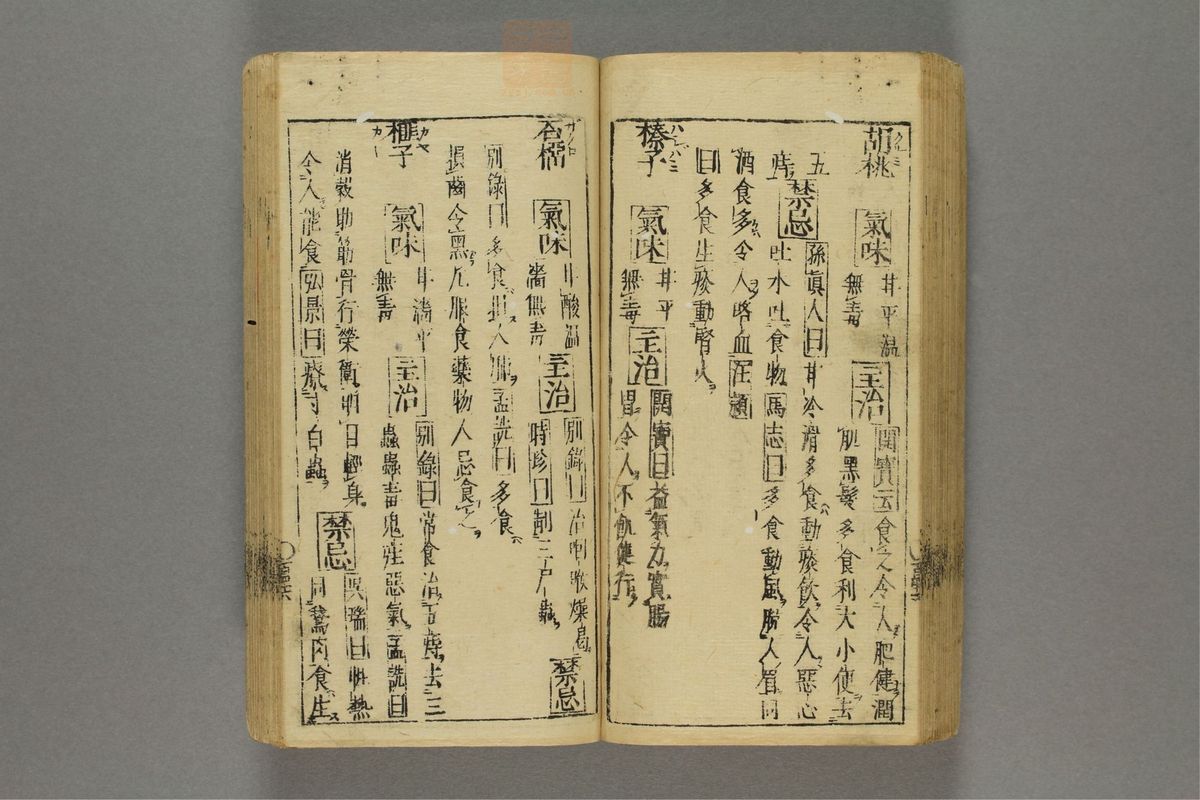 胡桃 氣味 甘平温無毒 主治 開寶云食之令人肥健潤
肌黑髮多食利大小便去
五
痔 禁忌 孫眞人曰甘冷滑多食動痰飲令人惡心
吐水吐食物馬志曰多食動風脫人眉同
酒食多令人咯血汪頴
曰多食生痰動腎火
榛子 ハシバミ 氣味 甘平無毒 主治 開寶曰益氣力實腸
胃令人不飢健行
石榴 ザクロ 氣味 甘酸温濇無毒 主治 別錄曰治咽喉燥渴
時珍曰制三尸蟲 禁忌
別錄曰多食損人肺孟詵曰多食
損齒令黑凡服食藥物人忌食之
榧子 カヤ 氣味 甘濇平無毒 主治 別錄曰常食治五痔去三
蟲蠱毒鬼疰惡氣孟詵曰
消穀助筋骨行榮衞明目輕身 禁忌 吳瑞曰性熱
同鵞肉食生
令人能食弘景曰療寸白蟲